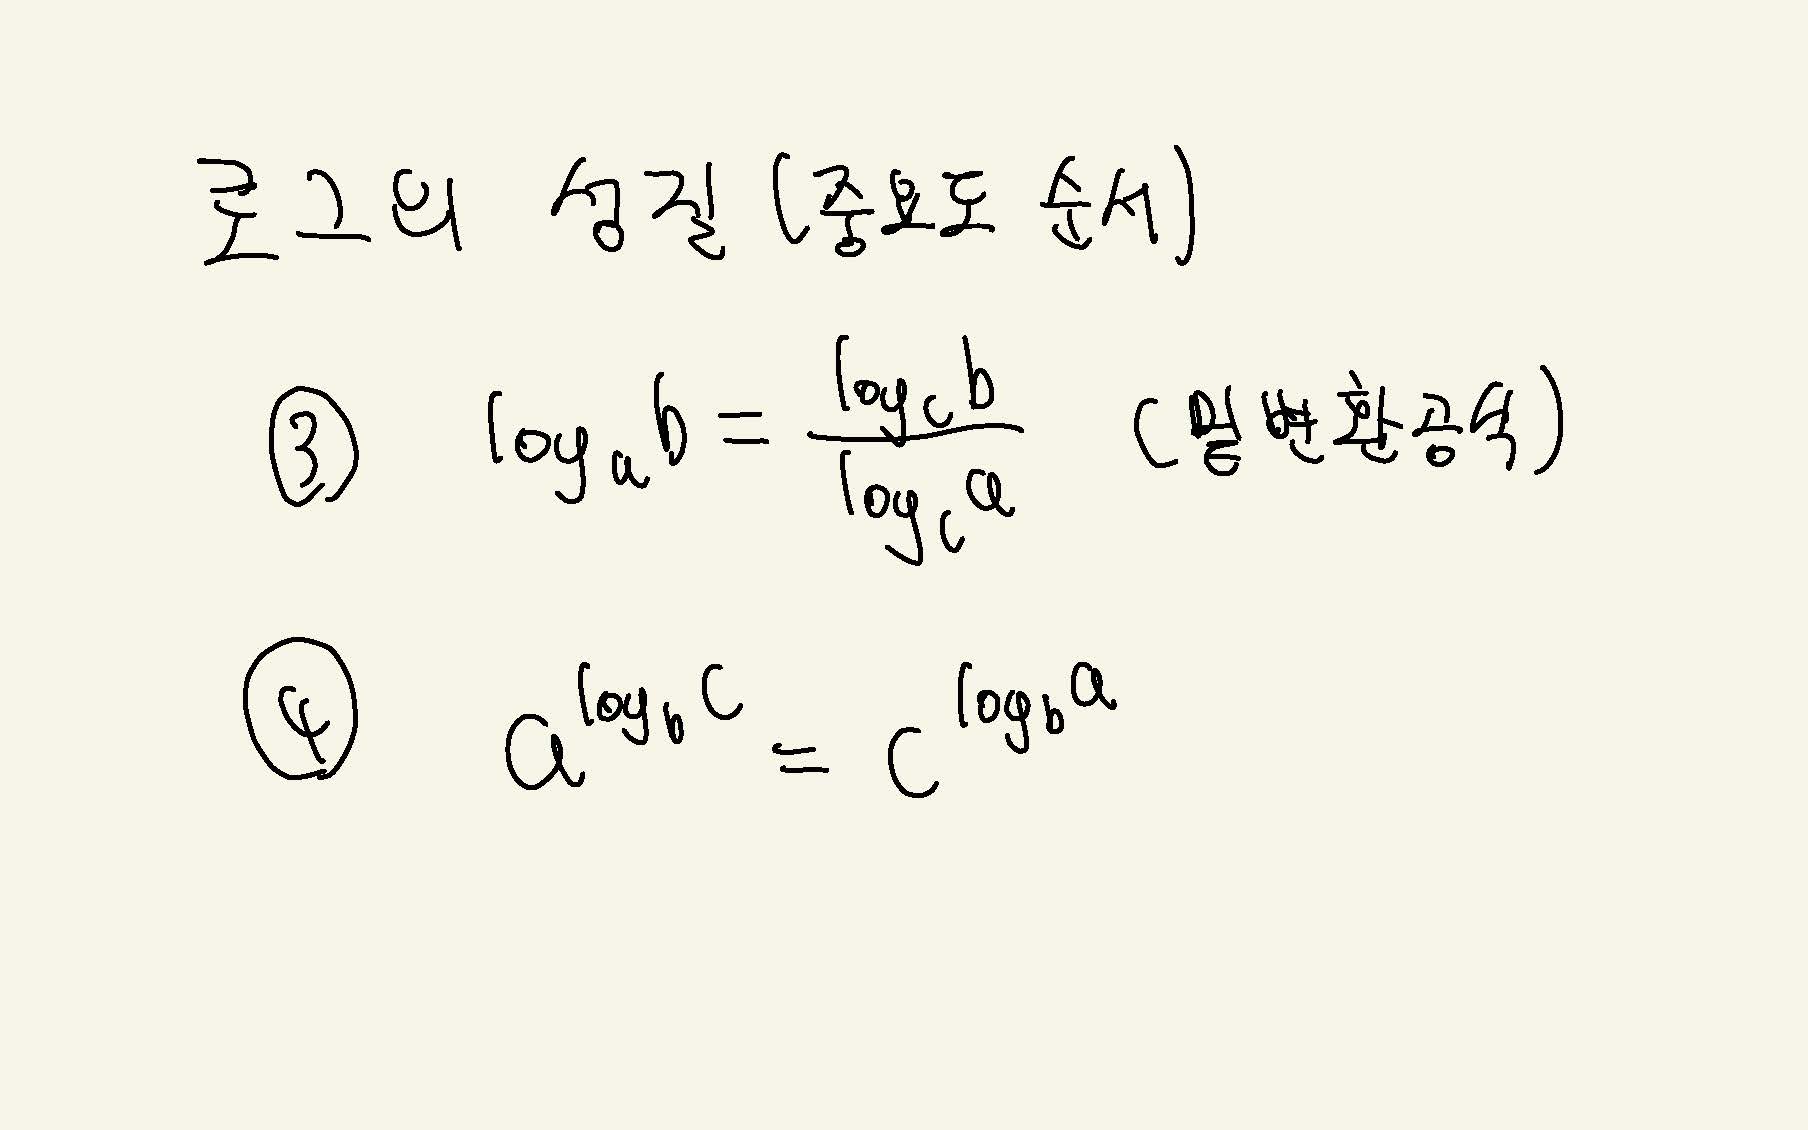 로그의 성질 (중요도 순서)
③ log_a b = \frac{log_c b}{log_c a} (밑변환공식)
④ a^{log_b c} = c^{log_b a}